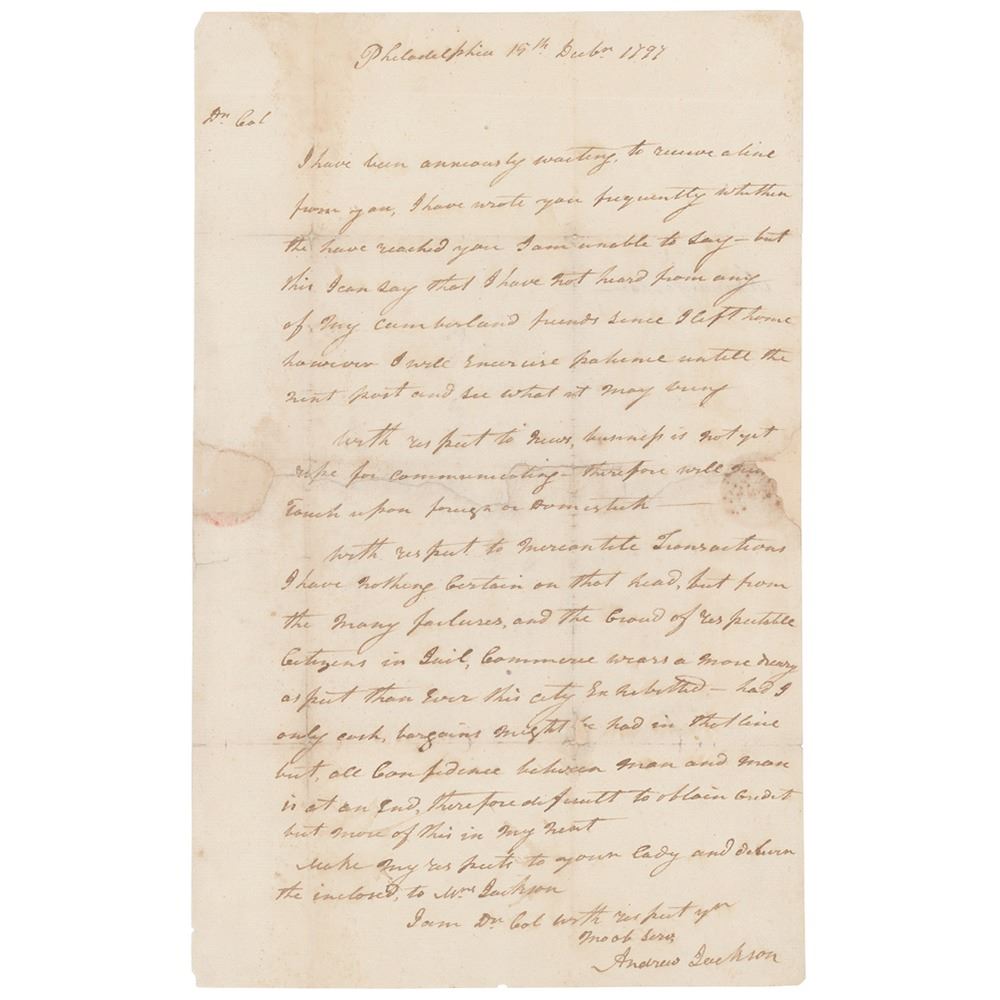 Philadelphia 15th Decbr 1797
Dr Col
I have been anxiously waiting, to receive a line
from you, I have wrote you frequently whether
the have reached you I am unable to say – but
this I can say that I have not heard from any
of my cumberland friends since I left home
however I will Exercise patience untill the
next post and see what it may bring
With respect to news, business is not yet
ripe for communicating – therefore will
Touch upon foreign or Domestick —
With respect to Mercantile Transactions
I have nothing Certain on that head, but from
the many failures, and the Croud of respectable
Citizens in Jail, Commerce wears a more dreery
aspect than Ever this city Exhebitted – had I
only cash, bargains might be had in that line
but, all Confidence between man and man
is at an End, therefore dificult to obtain Credit
but more of this in my next
Make my respects to your Lady and deliver
the inclosed, to Mrs Jackson
I am Dr Col with respect yr
Mo ob Serv
Andrew Jackson